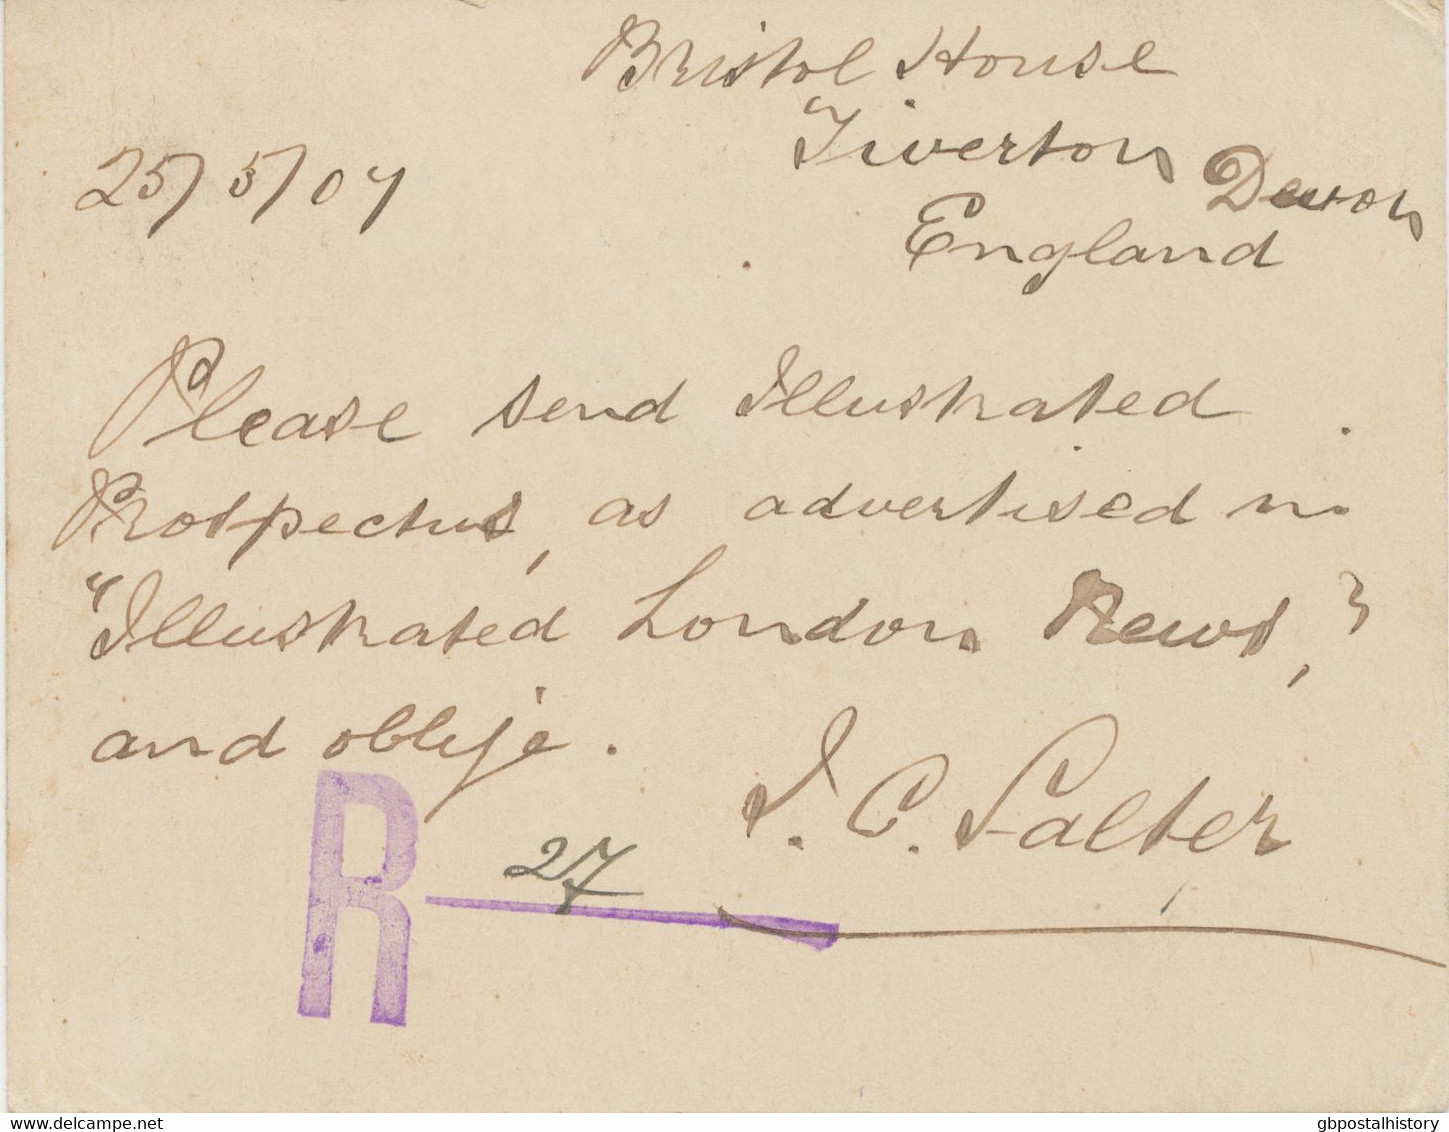 Bristol House
Tiverton Devon
England
25/5/04
Please send Illustrated
Prospectus, as advertised in
"Illustrated London News,"
and oblige.
J. C. Salter
R 27
www.delcampe.net
gbpostalhistory